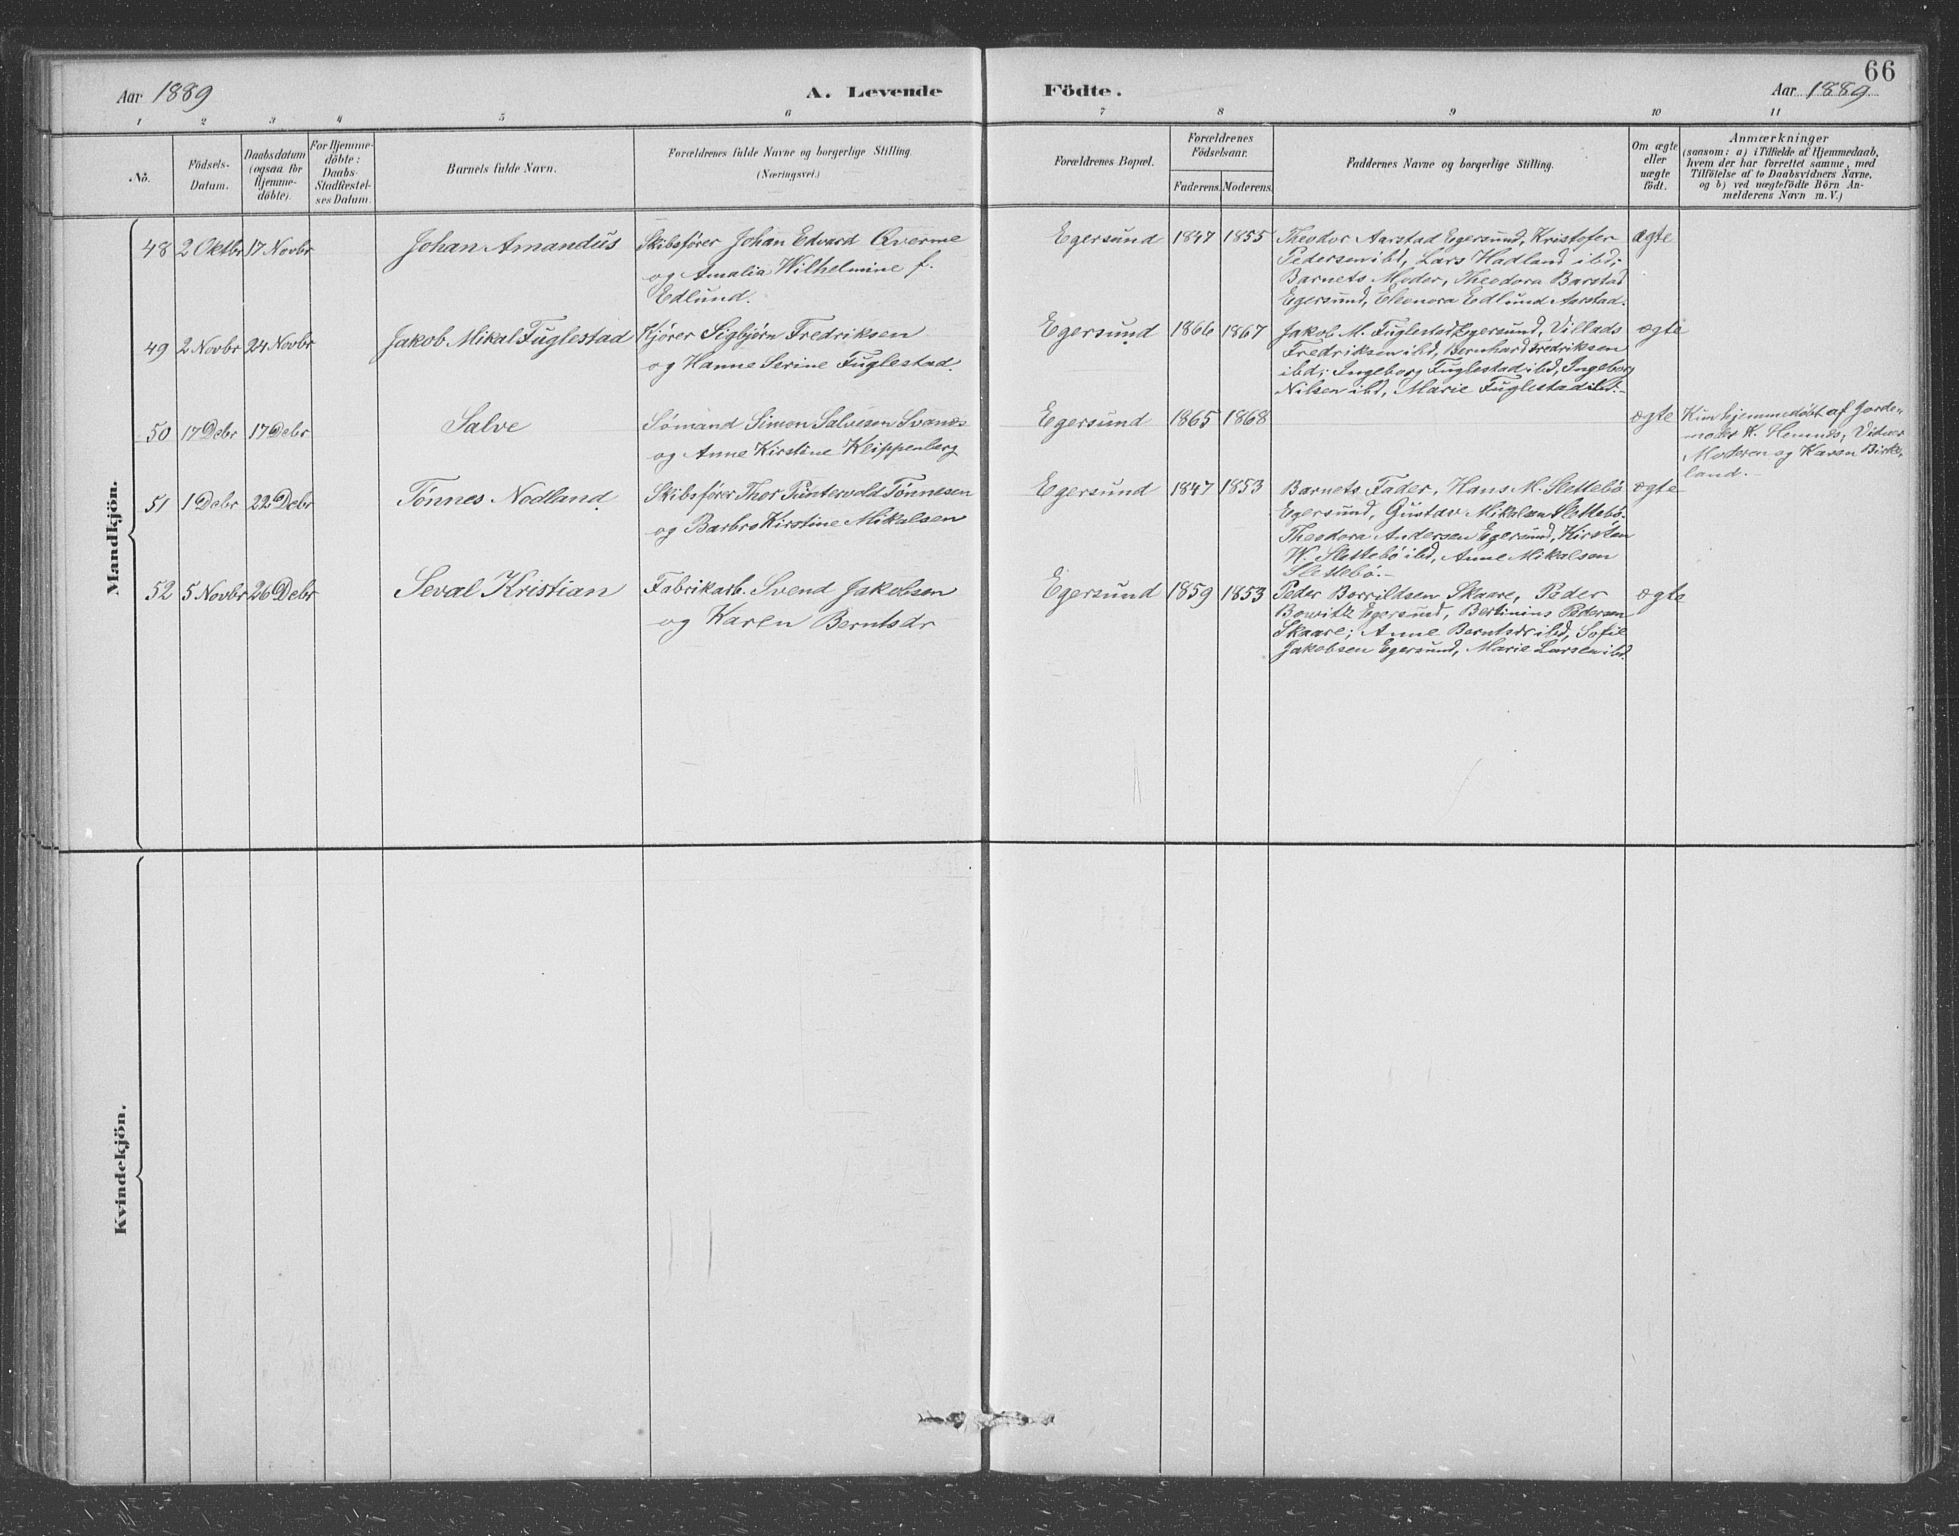 66
Aar 1889
A. Levende
Födte.
Aar 1889.
1 2 3 4 5 6 7 8 9 10 11
No.
Födsels-
Datum.
Daabsdatum
(ogsaa for
Hjemme-
döbte).
For Hjemme-
döbte:
Daabs-
Stadfæstel-
ses Datum.
Barnets fulde Navn.
Forældrenes fulde Navne og borgerlige Stilling.
(Næringsvei.)
Forældrenes Bopæl.
Forældrenes
Födselsaar.
Faderens. Moderens.
Faddernes Navne og borgerlige Stilling.
Om ægte
eller
uægte
födt.
Anmærkninger
(saasom: a) i Tilfælde af Hjemmedaab,
hvem der har forrettet samme, med
Tilföielse af to Daabsvidners Navne,
og b) ved uægtefödte Börn An-
melderens Navn m. V.)
Mandkjön.
48 2 Oktbr 17 Novbr Johan Amandus
Skibsfører Johan Edvard Qverme
og Amalia Wilhelmine f.
Edlund.
Egersund 1847 1855
Theodor Aarstad Egersund, Kristofer
Pedersen ibd, Lars Hadland ibd;
Barnets Moder, Theodora Barstad
Egersund, Eleonora Edlund Aarstad.
ægte
49 2 Novbr 24 Novbr Jakob Mikal Fuglestad
Kjører Sigbjørn Fredriksen
og Hanne Serine Fuglestad.
Egersund 1866 1867
Jakob M. Fuglestad Egersund, Villads
Fredriksen ibd, Bernhard Fredriksen
ibd; Ingeborg Fuglestad ibd, Ingeborg
Nilsen ibd, Marie Fuglestad ibd.-
ægte
50 17 Debr 17 Debr Salve
Sømand Simon Salvesen Svanes
og Anne Kirstine Klippenberg
Egersund 1865 1868
ægte
Kun hjemmedøbt af Jorde-
moder K. Hemnes; Vidner
Moderen og Karen Birke-
land.-
51 1 Debr 22 Debr Tönnes Nodland.
Skibsfører Thor Puntervold Tönnesen
og Barbro Kirstine Mikalsen
Egersund 1847 1853
Barnets Fader, Hans M. Slettebö
Egersund, Gustav Mikalsen Slettebö.
Theodora Andersen Egersund, Kirsten
W. Slettebö ibd, Anne Mikalsen
Slettebö.-
ægte
52 5 Novbr 26 Debr Seval Kristian
Fabrikarb. Svend Jakobsen
og Karen Berntsdr
Egersund 1859 1853
Peder Borrildsen Skaare, Peder
Bowitz Egersund, Bertinius Pedersen
Skaare; Anne Berntsdr ibd, Sofie
Jakobsen Egersund, Marie Larsen ibd.
ægte
Kvindekjön.